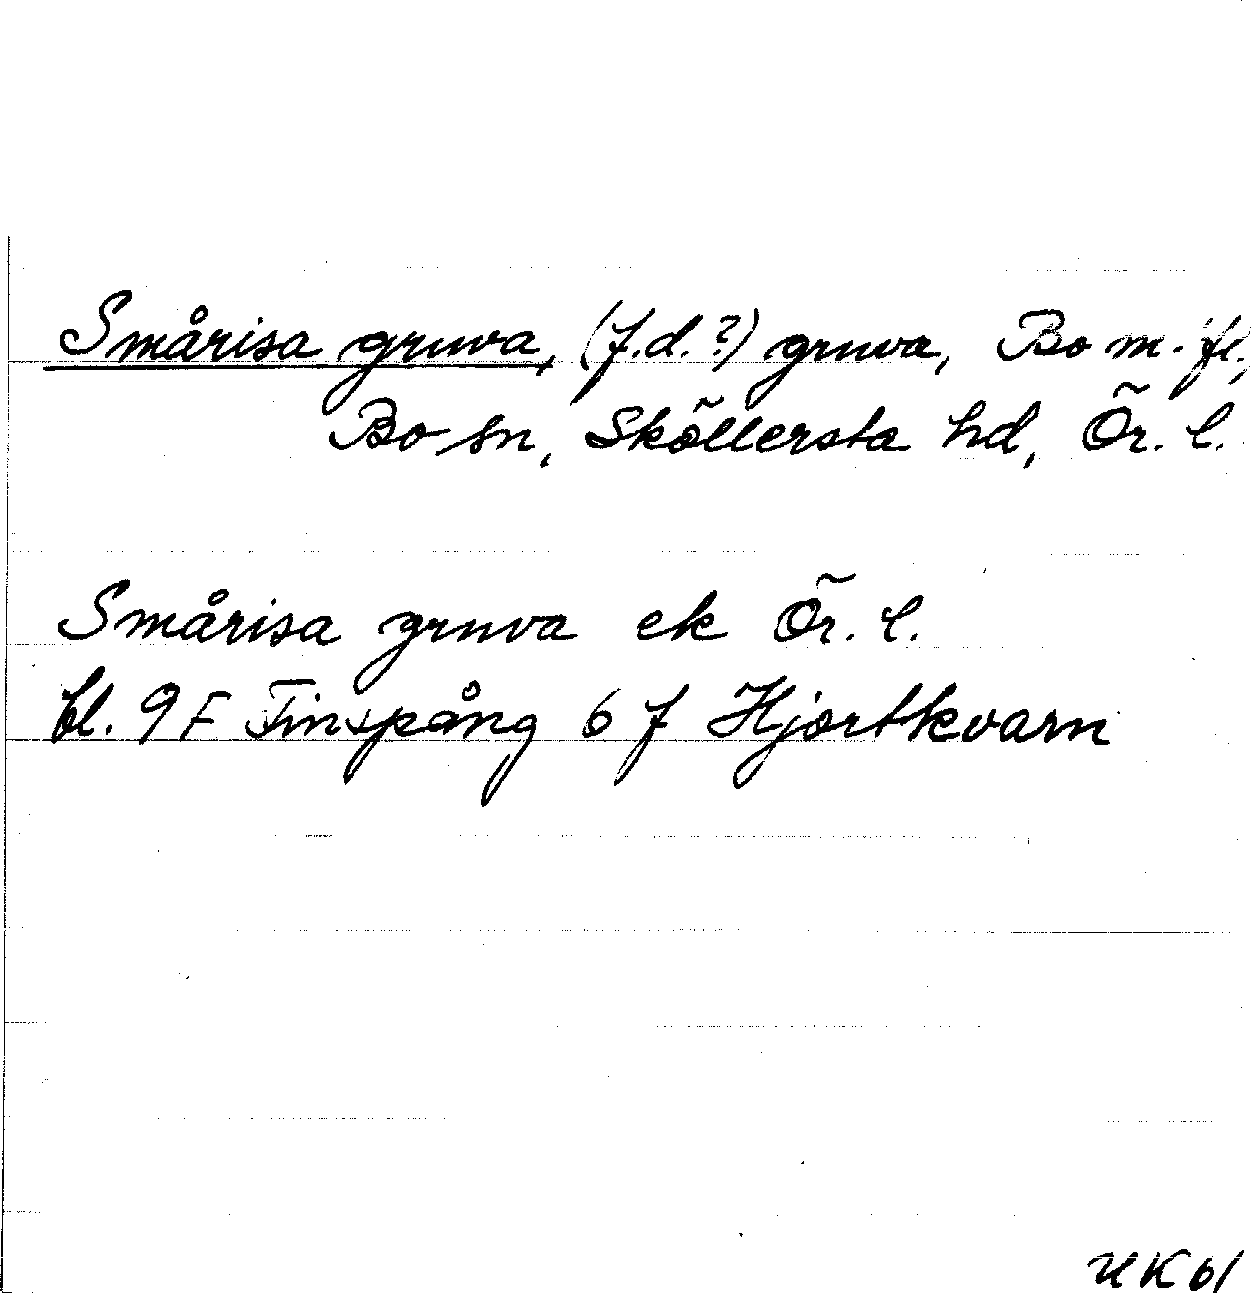 Smårisa gruva, (f.d.?) gruva, Bo m. fl.,
Bo sn, Sköllersta hd, Ör. l.
Smårisa gruva ek Ör. l.
bl. 9F Finspång 6 f Hjortkvarn
HK 61